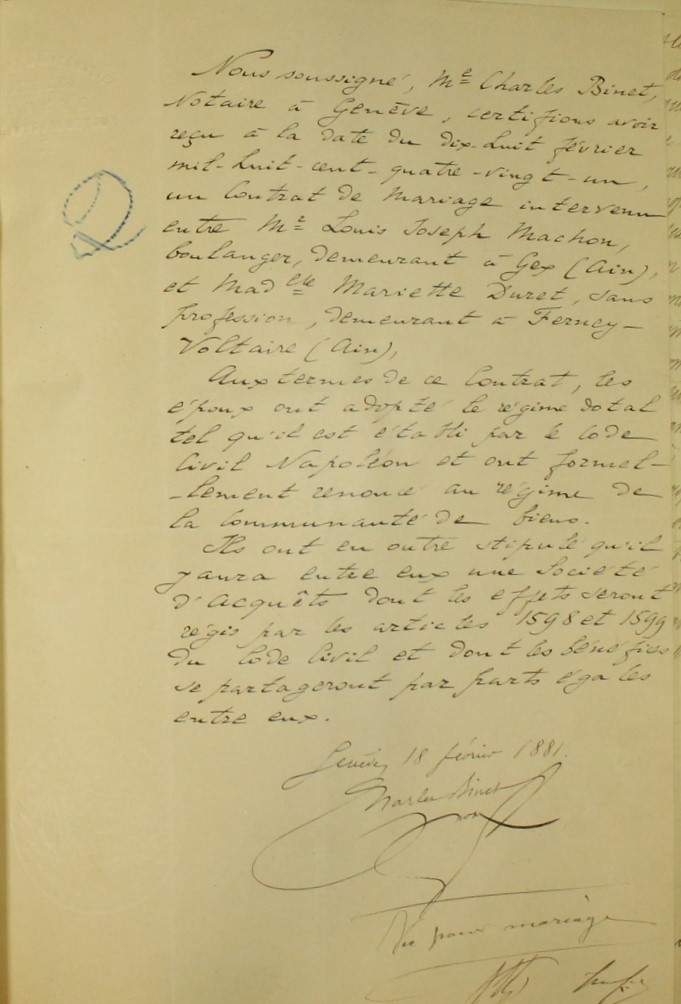 Nous soussigné, Mᵉ Charles Binet,
Notaire à Genève, certifions avoir
reçu à la date du dix-huit février
mil-huit-cent-quatre-vingt-un,
un Contrat de Mariage intervenu
entre Mʳ Louis Joseph Machon,
boulanger, demeurant à Gex (Ain),
et Madᵉˡˡᵉ Mariette Duret, sans
profession, demeurant à Ferney-
Voltaire (Ain),
Aux termes de ce Contrat, les
époux ont adopté le régime dotal
tel qu'il est établi par le Code
Civil Napoléon et ont formel-
-lement renoncé au régime de
la Communauté de biens.
Ils ont en outre stipulé qu'il
y aura entre eux une Société
d'Acquêts dont les effets seront
régis par les articles 1598 et 1599
du Code Civil et dont les bénéfices
se partageront par parts égales
entre eux.
Genève, 18 février 1881.
Charles Binet
not
Vu pour mariage